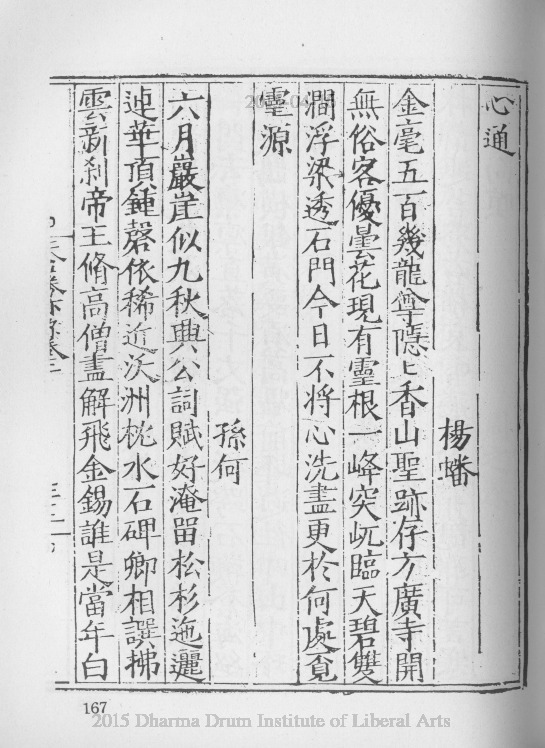 心通
楊蟠
金毫五百幾龍尊隱〻香山聖跡存方廣寺開
無俗客優曇花現有靈根一峰突屼臨天碧雙
澗浮梁透石門今日不將心洗盡更於何處覓
靈源
孫何
六月巖崖似九秋興公詞賦好淹留松杉迤邐
連華頂鍾磬依稀近沃洲桄水石碑卿相譔拂
雲新刹帝王脩高僧盡解飛金錫誰是當年白
167
2015 Dharma Drum Institute of Liberal Arts